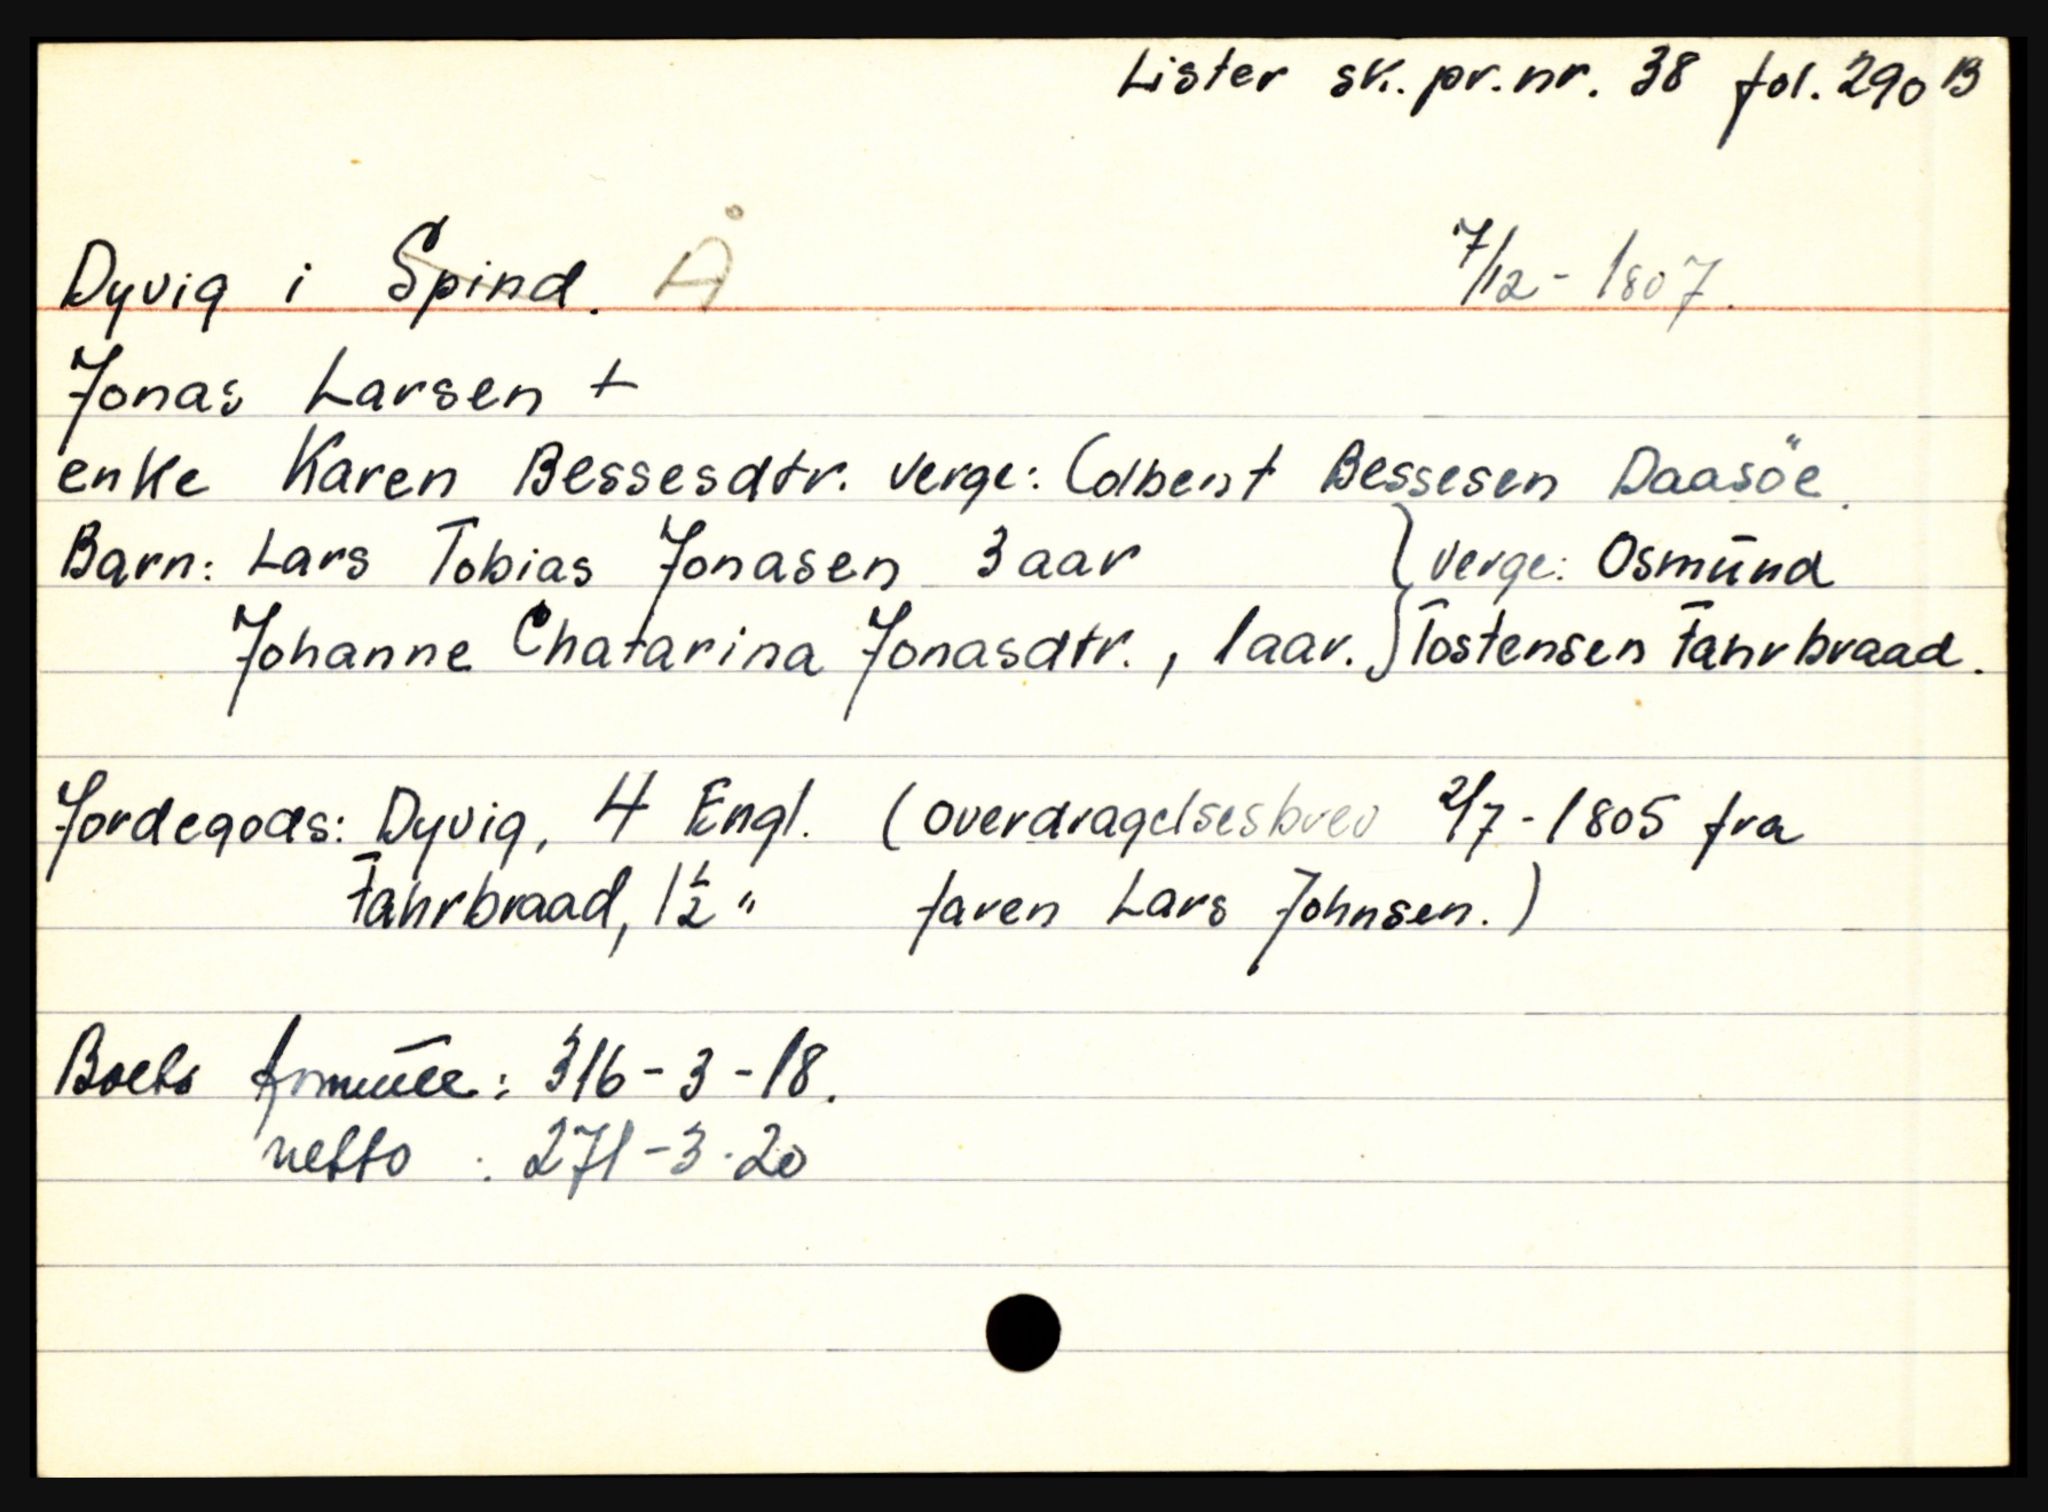 Lister sk. pr. nr. 38 fol. 290 B
Dyvig i Spind. Å 7/12 - 1807.
Jonas Larsen +
enke Karen Bessesdtr. verge: Colbent Bessesen Daasöe.
Barn: Lars Tobias Jonasen 3 aar } verge: Osmund
Johanne Chatarina Jonasdtr., 1 aar. } Tostensen Fahrbraad.
Jordegods: Dyvig, 4 Engl. (overdragelsesbrev 2/7 - 1805 fra
Fahrbraad, 1½ " faren Lars Johnsen.)
Boets formue: 316 - 3 - 18.
netto : 271 - 3 - 20